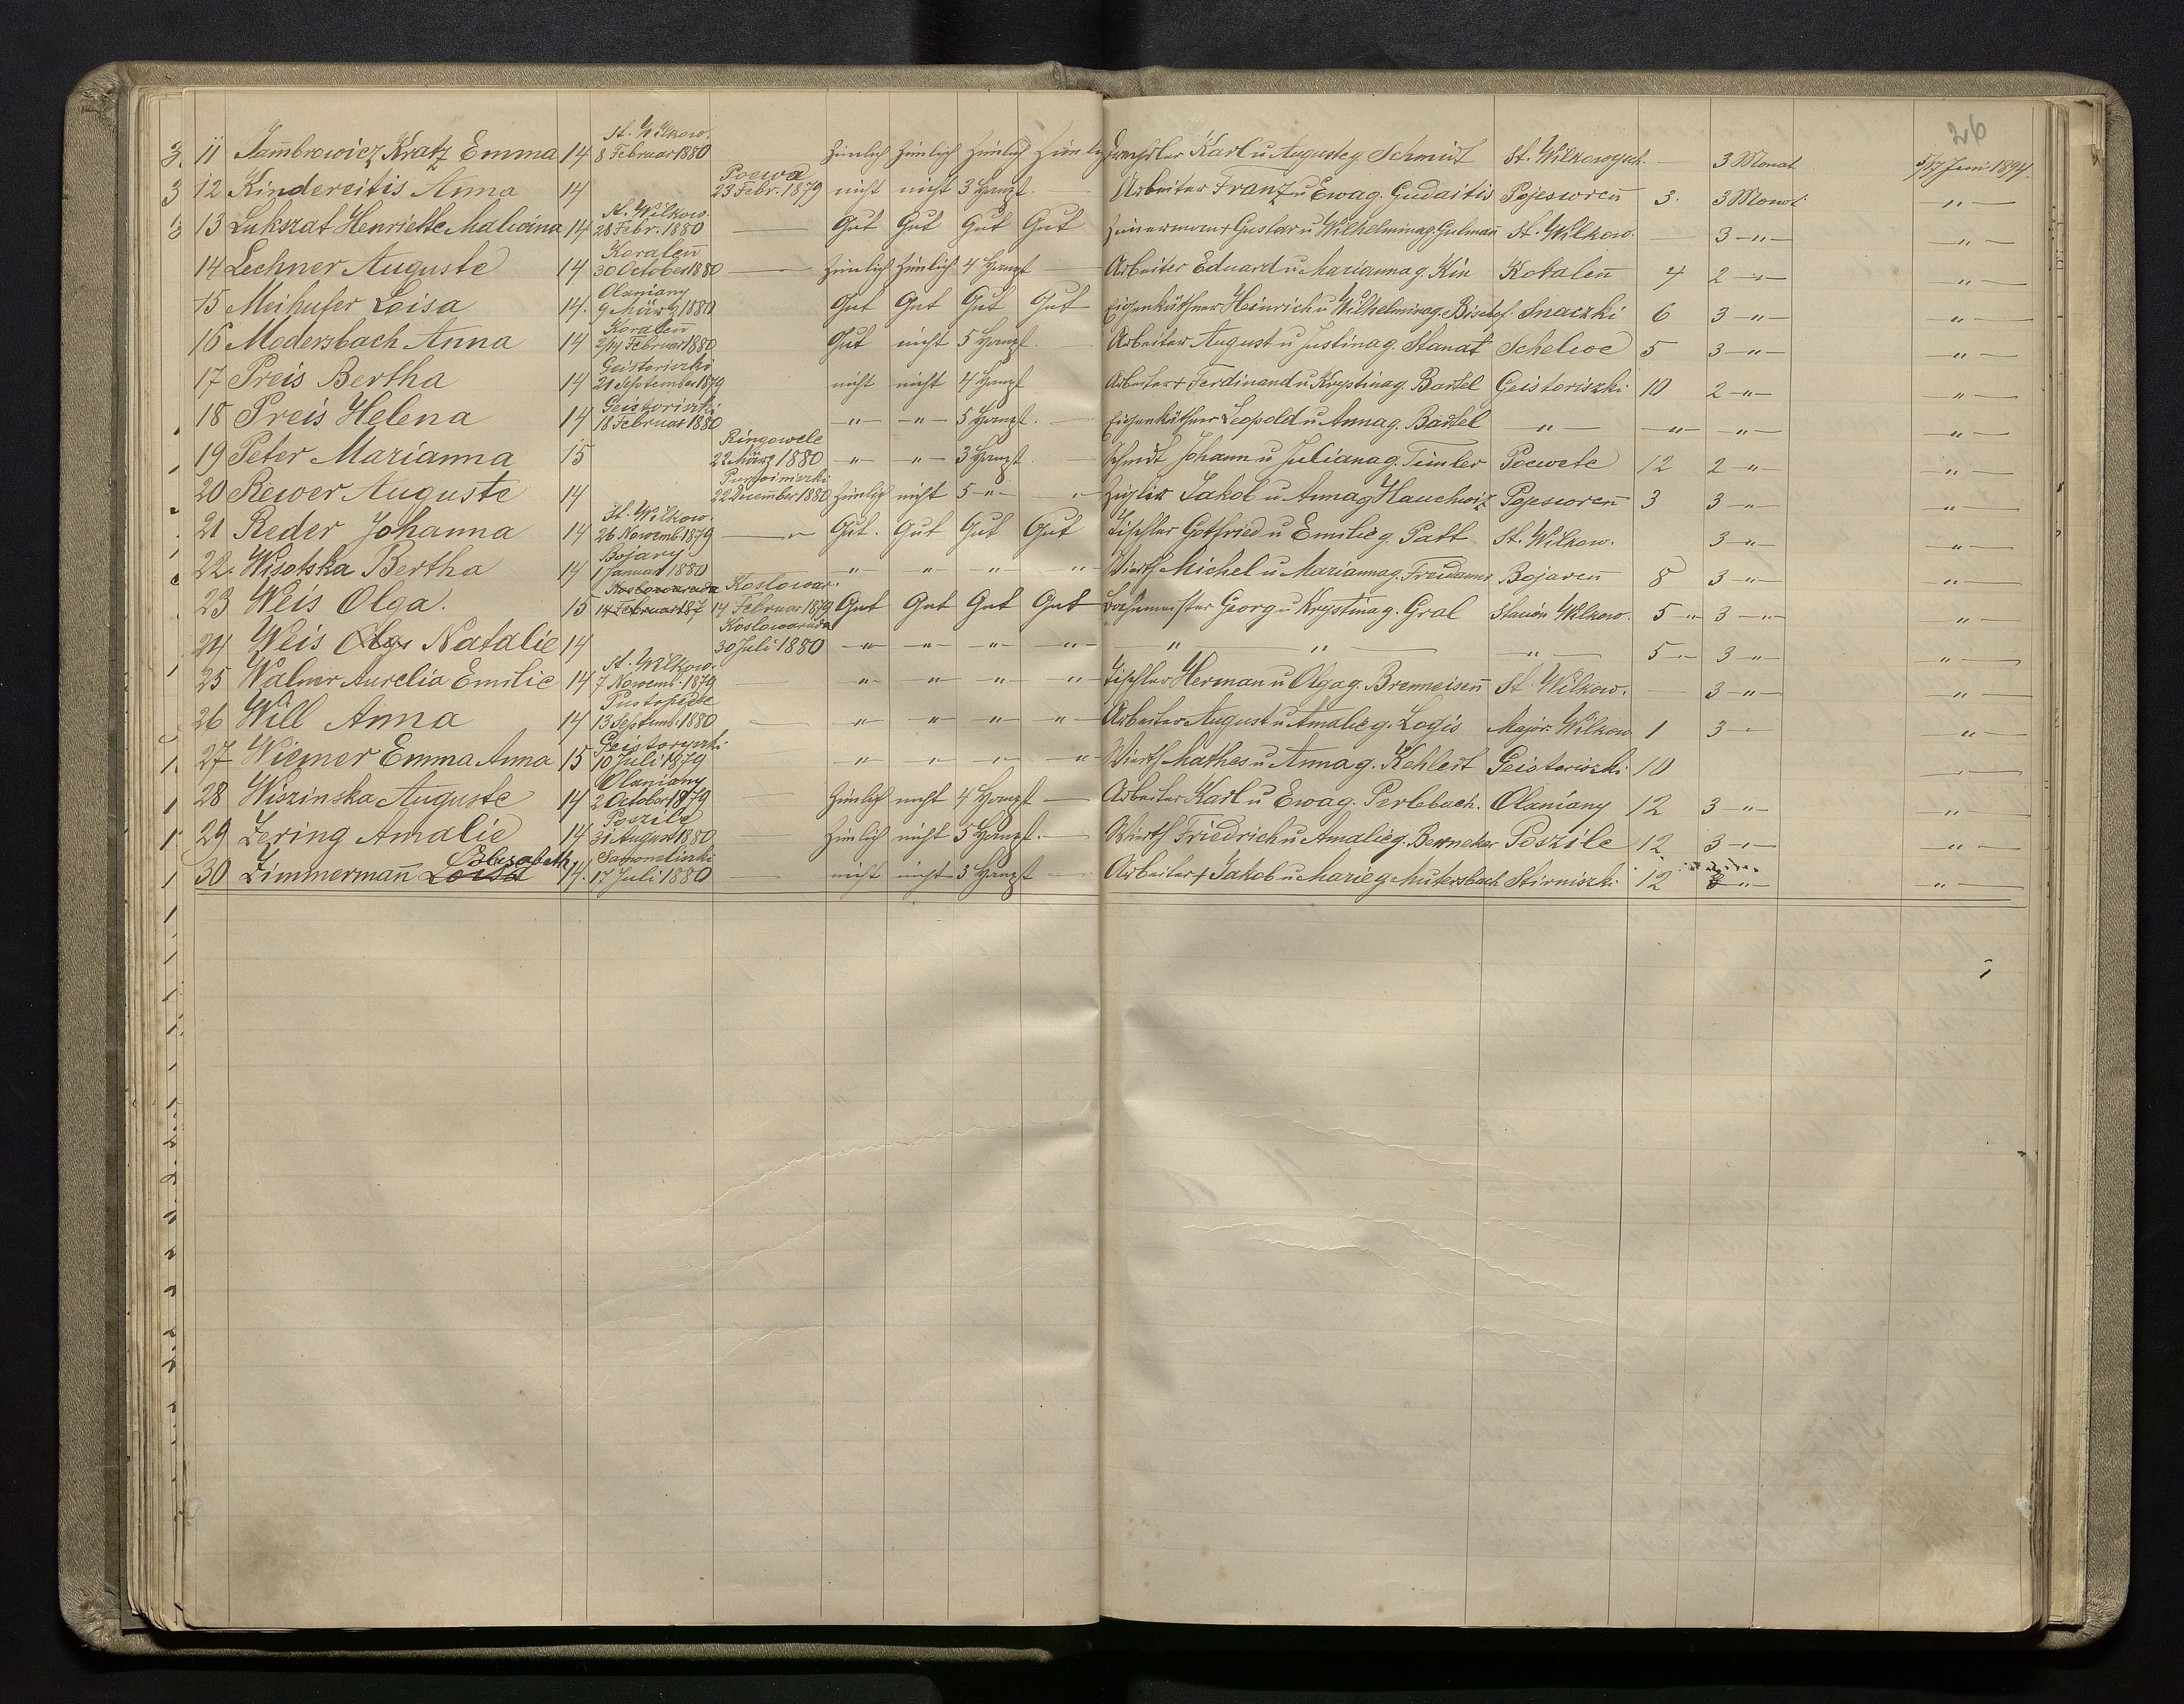 26
11 Jambrowicz Kratz Emma 14 St. Wilkow. 8 Februar 1880 Zimlich Zimlich Zimlich Zimlich Karl u Auguste g Schmidt St. Wilkowysch. — 3 Monat 5/17 Juni 1894
12 Kindereitis Anna 14 Poewa 23 Febr. 1879 nicht nicht 3 Haupt. — Arbeiter Franz u Ewa g. Gudaitis Pojesworen̄ 3. 3 Monat „ —
13 Lukszat Henriette Malwina 14 St. Wilkow. 28 Febr. 1880 — Gut Gut Gut Gut Zimermann + Gustav u Wilhelmina g. Gutman̄ St. Wilkow. — 3 —„— „ —
14 Lechner Auguste 14 Koralen̄ 30 October 1880 — Zimlich Zimlich 4 Haupt — Arbeiter Eduard u Marianna g. Kin Koralen̄ 4 2 —„— „ —
15 Meihufer Loisa 14. Olxniany 9 März 1880 Gut Gut Gut Gut Eigenkäthner Heinrich u Wilhelmina g. Bischof. Snaczki 6 3 —„— „ —
16 Modersbach Anna 14 Koralen̄ 2/14 Februar 1880 Gut nicht 5 Haupt. — Arbeiter August u Justina g. Stanat Schelwe 5 3 —„— „ —
17 Preis Bertha 14 Geistoriszki 21 September 1879 nicht nicht 4 Haupt Arbeiter + Ferdinand u Krystina g. Bartel Geistoriszki 10 2 —„— „ —
18 Preis Helena 14 Geistoriszki 18 Februar 1880 —„— —„— 5 Haupt. — Eigenkäthner Leopold u Anna g. Bartel —„— —„— —„— „ —
19 Peter Marianna 15 Ringowele 22 März 1880 —„— „— 3 Haupt — Schmidt Johann u Juliana g. Timler Poewete 12 2 —„— „ —
20 Rewer Auguste 14 22 December 1880 Zimlich nicht 5 —„— „ Jakob u Anna g Hauchwiz Pojesworen̄ 3 3 —„— „ —
21 Reder Johanna 14 St. Wilkow. 26 Novemb. 1879 —„ Gut. Gut Gut Gut Tischler Gottfried u Emilie g. Patt St. Wilkow. 3 —„— „ —
22. Wisotska Bertha 14 Bojary 1 Januar 1880 —„— —„— —„— „— Wirth Michel u Marianna g. Freidamer Bojaren̄ 8 3 —„— „ —
23 Weis Olga. 15 Koslowaruda 14 Februar 187 Koslowar. 14 Februar 1879 Gut Gut Gut Gut Georg u Krystina g. Gral Stazion Wilkow. 5 —„ 3 —„— „ —
24 Weis Olga Natalie 14 Koslowaruda 30 Juli 1880 —„— —„— —„— —„— „ „ —„— 5 —„ 3 —„— „ —
25 Walner Aurelia Emilie 14 St. Wilkow. 7 Novemb. 1879 — —„— —„— —„— „— Tischler Herman u Olga g. Bremeisen̄ St. Wilkow. — 3 —„— „ —
26 Will Anna 14 Pustopedse 13 Septemb. 1880 — —„— —„— —„— „— Arbeiter August u Amalie g. Logis Major. Wilkow 1 3 —„ „ —
27 Wiemer Emma Anna 15 Geistoryszki 10 Juli 1879 —„— —„— —„— „— Wirth Mathes u Anna g. Kehlert Geistoriszki 10
28 Wiszinska Auguste 14 Olxniany 2 October 1879 — Zimlich nicht 4 Haupt — Arbeiter Karl u Ewa g. Perlebach. Olxniany 12 3 —„— „ —
29 Zering Amalie 14 Poszile 31 August 1880 — Zimlich nicht 5 Haupt. — Wirth Friedrich u Amalie g. Berneker Poszile 12 3 —„— „ —
30 Zimmerman̄ Loisa Elisabeth 14. 17 Juli 1880 — nicht nicht 3 Haupt — Arbeiter + Jakob u Marie g Mutersbach Stirniszki 12 3 —„— „ —